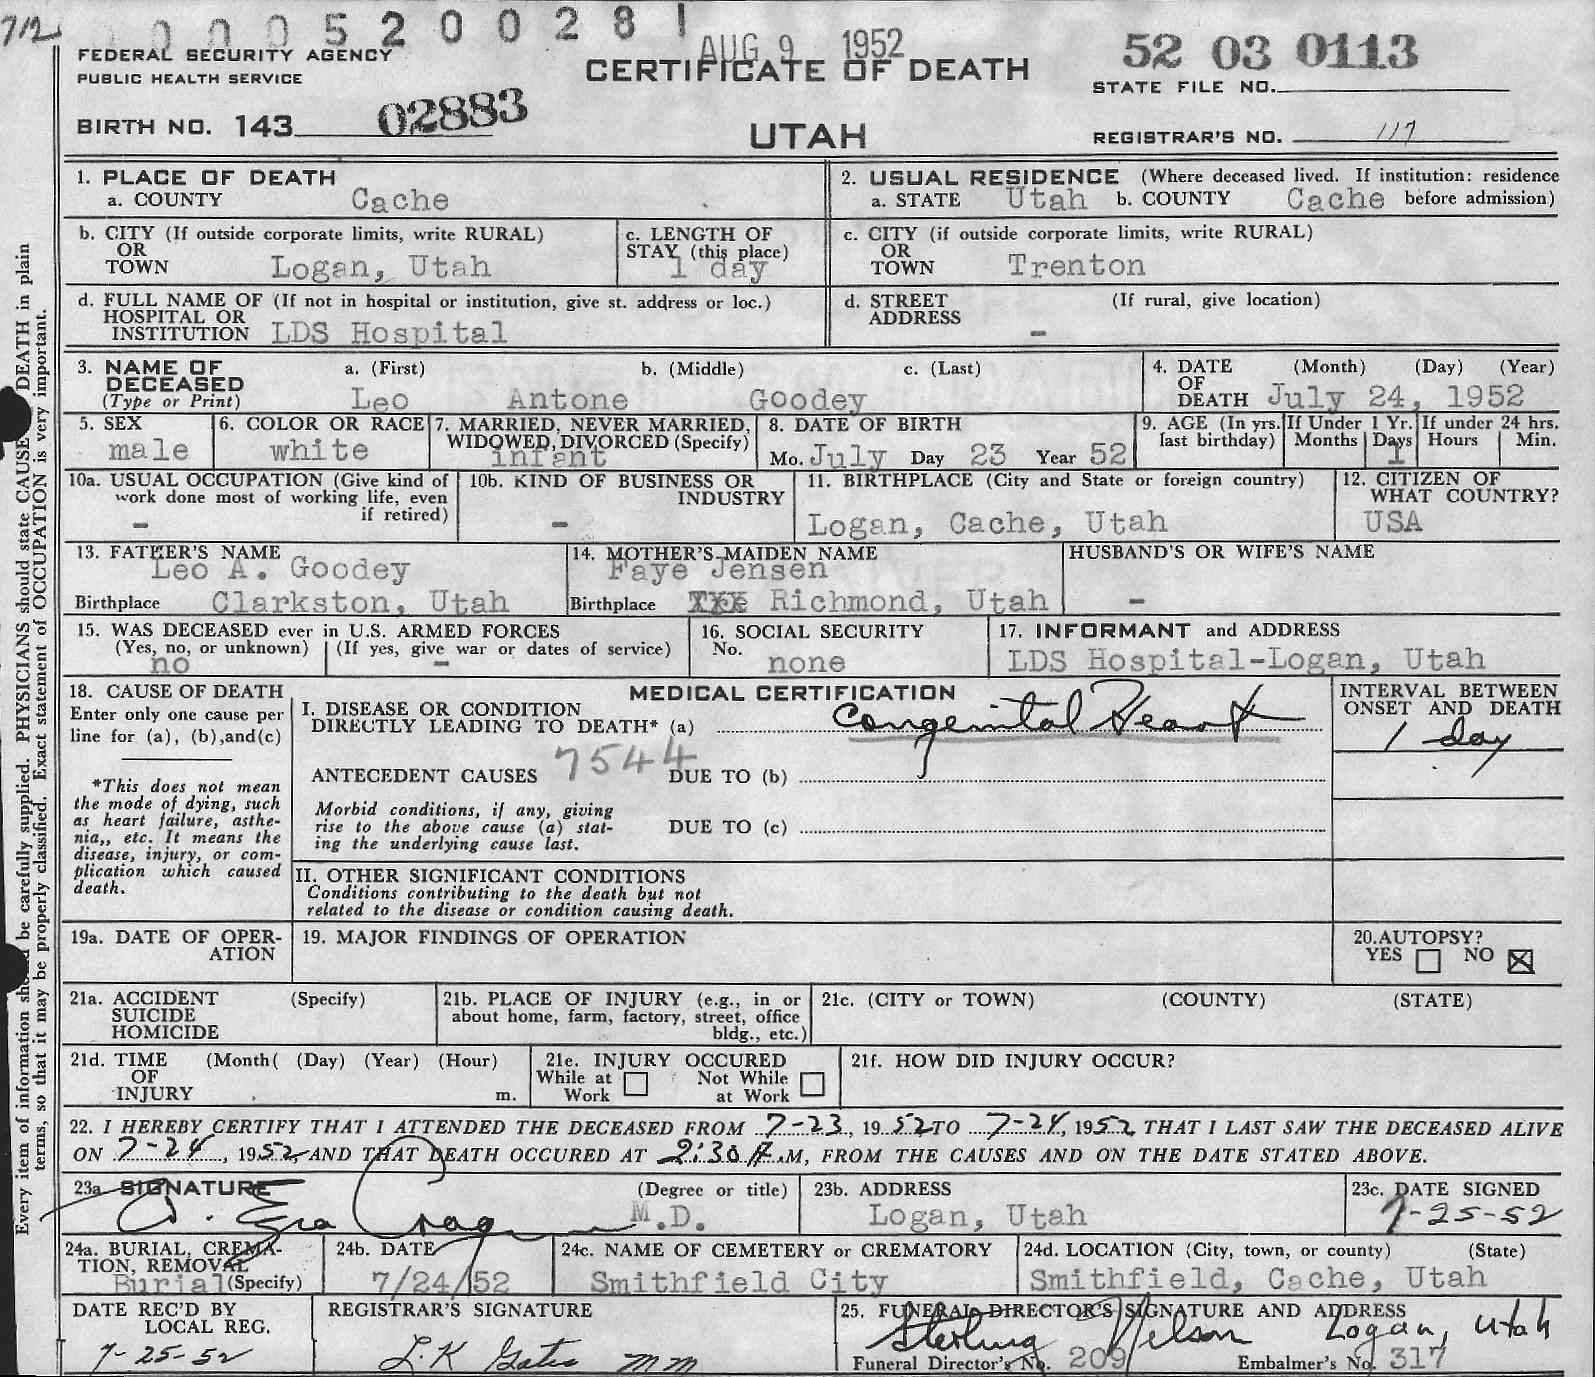 712
0 0 0 5 2 0 0 2 8 1
AUG 9 1952
52 03 0113
FEDERAL SECURITY AGENCY
PUBLIC HEALTH SERVICE
CERTIFICATE OF DEATH
STATE FILE NO.
BIRTH NO. 143 02883
UTAH
REGISTRAR'S NO. 117
1. PLACE OF DEATH
a. COUNTY Cache
2. USUAL RESIDENCE (Where deceased lived. If institution: residence
a. STATE Utah b. COUNTY Cache before admission)
b. CITY (If outside corporate limits, write RURAL)
OR
TOWN Logan, Utah
c. LENGTH OF
STAY (this place)
1 day
c. CITY (if outside corporate limits, write RURAL)
OR
TOWN Trenton
d. FULL NAME OF (If not in hospital or institution, give st. address or loc.)
HOSPITAL OR
INSTITUTION LDS Hospital
d. STREET (If rural, give location)
ADDRESS -
3. NAME OF a. (First) b. (Middle) c. (Last)
DECEASED
(Type or Print) Leo Antone Goodey
4. DATE (Month) (Day) (Year)
OF
DEATH July 24, 1952
5. SEX
male
6. COLOR OR RACE
white
7. MARRIED, NEVER MARRIED,
WIDOWED, DIVORCED (Specify)
infant
8. DATE OF BIRTH
Mo. July Day 23 Year 52
9. AGE (In yrs.
last birthday)
If Under 1 Yr.
Months Days
1
If under 24 hrs.
Hours Min.
10a. USUAL OCCUPATION (Give kind of
work done most of working life, even
if retired)
-
10b. KIND OF BUSINESS OR
INDUSTRY
-
11. BIRTHPLACE (City and State or foreign country)
Logan, Cache, Utah
12. CITIZEN OF
WHAT COUNTRY?
USA
13. FATHER'S NAME
Leo A. Goodey
Birthplace Clarkston, Utah
14. MOTHER'S MAIDEN NAME
Faye Jensen
Birthplace Richmond, Utah
HUSBAND'S OR WIFE'S NAME
-
15. WAS DECEASED ever in U.S. ARMED FORCES
(Yes, no, or unknown) (If yes, give war or dates of service)
no -
16. SOCIAL SECURITY
No.
none
17. INFORMANT and ADDRESS
LDS Hospital-Logan, Utah
18. CAUSE OF DEATH
Enter only one cause per
line for (a), (b),and(c)
*This does not mean
the mode of dying, such
as heart failure, asthe-
nia,, etc. It means the
disease, injury, or com-
plication which caused
death.
MEDICAL CERTIFICATION
I. DISEASE OR CONDITION
DIRECTLY LEADING TO DEATH* (a) Congenital Heart
ANTECEDENT CAUSES 7544 DUE TO (b)
Morbid conditions, if any, giving
rise to the above cause (a) stat-
ing the underlying cause last.
DUE TO (c)
II. OTHER SIGNIFICANT CONDITIONS
Conditions contributing to the death but not
related to the disease or condition causing death.
INTERVAL BETWEEN
ONSET AND DEATH
1 day
19a. DATE OF OPER-
ATION
19. MAJOR FINDINGS OF OPERATION
20.AUTOPSY?
YES NO
21a. ACCIDENT (Specify)
SUICIDE
HOMICIDE
21b. PLACE OF INJURY (e.g., in or
about home, farm, factory, street, office
bldg., etc.)
21c. (CITY or TOWN) (COUNTY) (STATE)
21d. TIME (Month( (Day) (Year) (Hour)
OF
INJURY m.
21e. INJURY OCCURED
While at Not While
Work at Work
21f. HOW DID INJURY OCCUR?
22. I HEREBY CERTIFY THAT I ATTENDED THE DECEASED FROM 7-23, 1952 TO 7-24, 1952 THAT I LAST SAW THE DECEASED ALIVE
ON 7-24, 1952, AND THAT DEATH OCCURED AT 2:30 A.M, FROM THE CAUSES AND ON THE DATE STATED ABOVE.
23a. SIGNATURE (Degree or title)
Ezra Cragun M.D.
23b. ADDRESS
Logan, Utah
23c. DATE SIGNED
7-25-52
24a. BURIAL, CREMA-
TION, REMOVAL
Burial (Specify)
24b. DATE
7/24/52
24c. NAME OF CEMETERY or CREMATORY
Smithfield City
24d. LOCATION (City, town, or county) (State)
Smithfield, Cache, Utah
DATE REC'D BY
LOCAL REG.
7-25-52
REGISTRAR'S SIGNATURE
L.K Gates MM
25. FUNERAL DIRECTOR'S SIGNATURE AND ADDRESS
Sterling Nelson Logan, Utah
Funeral Director's No. 209 Embalmer's No. 317
Every item of information should be carefully supplied. PHYSICIANS should state CAUSE DEATH in plain
terms, so that it may be properly classified. Exact statement of OCCUPATION is very important.